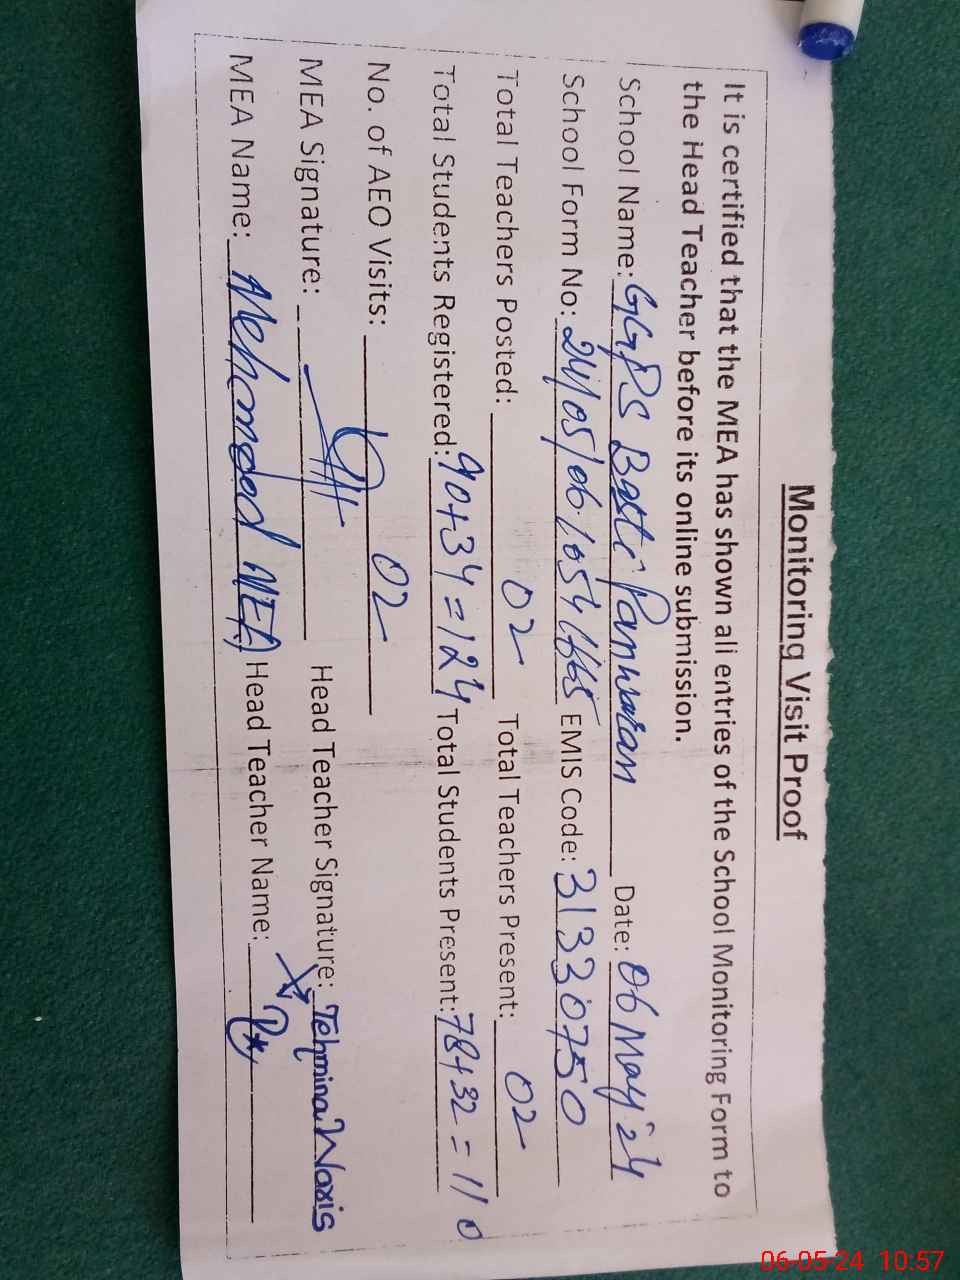 Monitoring Visit Proof
It is certified that the MEA has shown all entries of the School Monitoring Form to
the Head Teacher before its online submission.
School Name: GGPS Basti Panwaran Date: 06 May 24
School Form No: 24/05/06/054 EMIS Code: 31330750
Total Teachers Posted: 02 Total Teachers Present: 02
Total Students Registered: 90+34=124 Total Students Present: 78+32=110
No. of AEO Visits: 02
MEA Signature: Head Teacher Signature: Tehmina Waris
MEA Name: MEA Head Teacher Name:
06-05-24 10:57